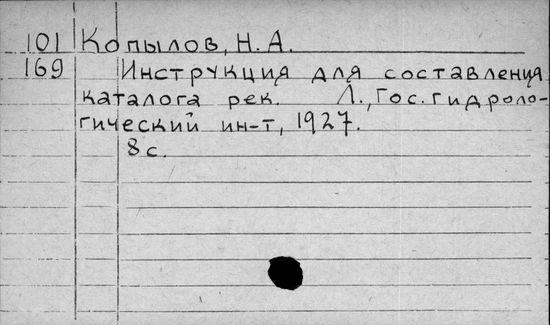 101 Копылов, Н. А.
169 Инструкция для составления
каталога рек. Л., Гос. гидроло-
гический ин-т, 1927.
8 с.